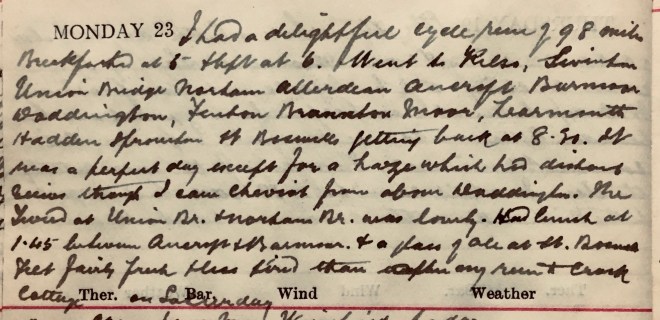 MONDAY 23 I had a delightful cycle run of 98 miles
Breakfasted at 5 & left at 6. Went to Kelso, Swinton
Union Bridge Norham Allerdean Ancroft Barmoor
Doddington, Fenton Branxton Moor, Learmouth
Hadden Sprouston St Boswells getting back at 8-30. It
was a perfect day except for a haze which hid distant
views though I saw Cheviot from above Doddington. The
Tweed at Union Br. & Norham Br. was lovely. Had lunch at
1.45 between Ancroft & Barmoor. & a glass of ale at St. Boswells
Felt fairly fresh & less tired than after my run to Crook
Cottage on Saturday
Ther. Bar. Wind Weather